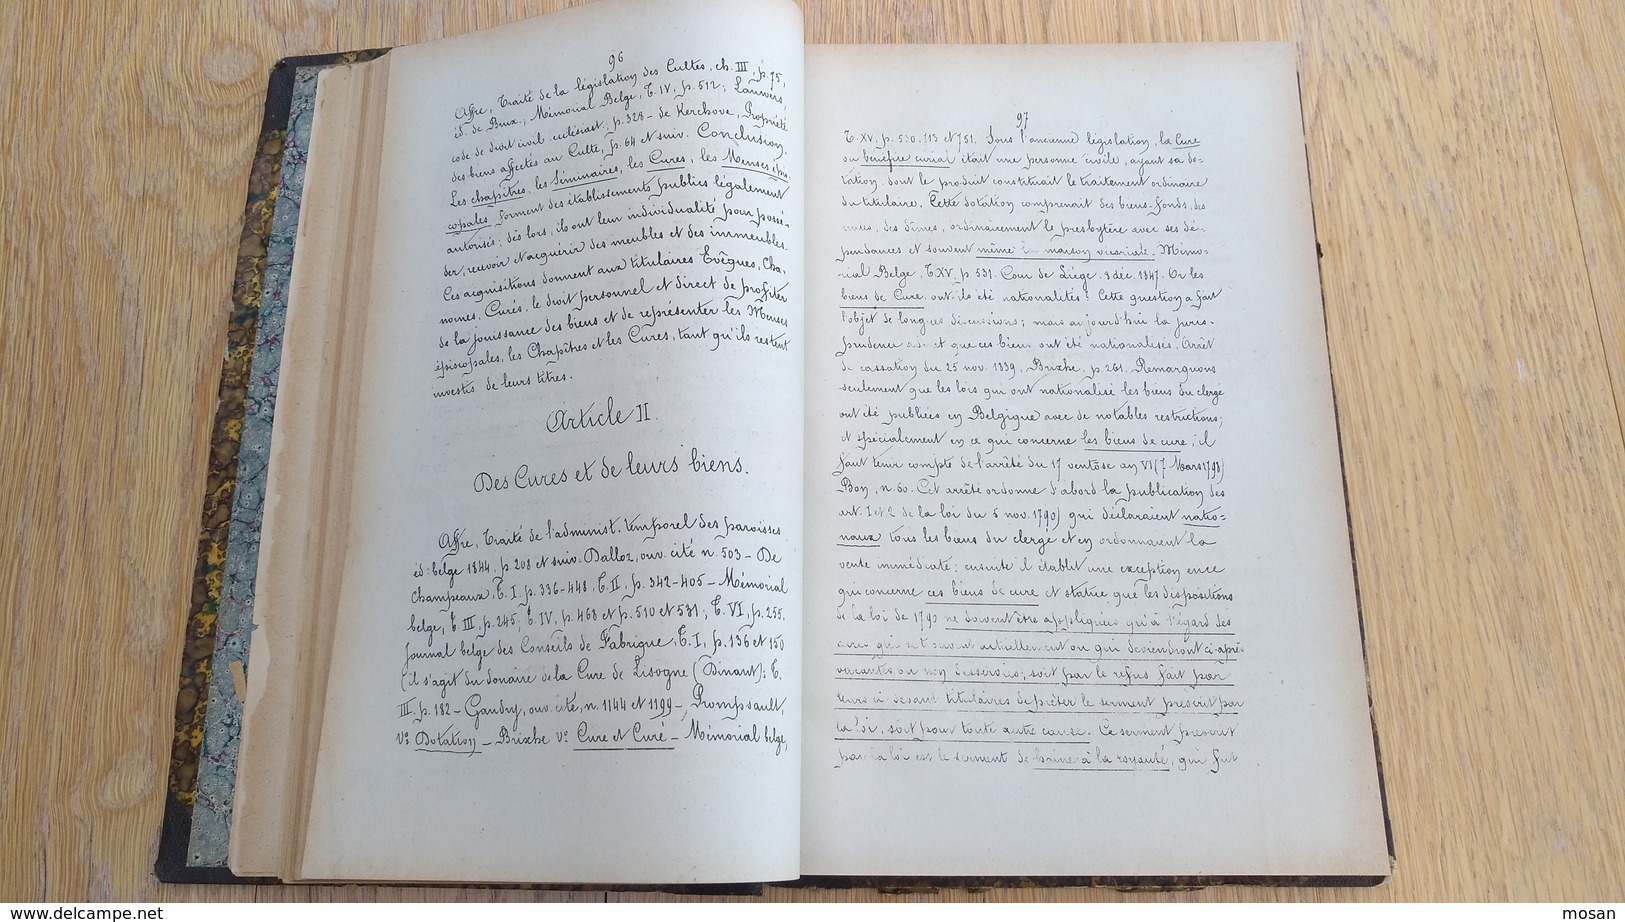 96
Affre, Traité de la législation des Cultes, ch. III, p. 75,
éd. de Brux.; Mémorial Belge, T. IV, p. 512; Lauwers,
code de droit civil ecclésiast; p. 328 - de Kerchove, Propriété
des biens affectés au Culte, p. 64 et suiv. Conclusion.
Les chapitres, les Séminaires, les Cures, les Menses épis-
copales forment des établissements publics légalement
autorisés; dès lors, ils ont leur individualité pour possé-
der, recevoir et acquérir des meubles et des immeubles.
Ces acquisitions donnent aux titulaires Evêques, Cha-
noines, Curés, le droit personnel et direct de profiter
de la jouissance des biens et de représenter les Menses
épiscopales, les Chapîtres et les Cures, tant qu'ils restent
investis de leurs titres.
Article II.
Des Cures et de leurs biens.
Affre, Traité de l'administ. temporel des paroisses,
éd. belge 1844, p. 208 et suiv. Dalloz, ouv. cité n. 503 - De
Champeaux, T. I, p. 336-448, T. II, p. 342-405 - Mémorial
belge, T. III, p. 245; T. IV, p. 468 et p. 510 et 531; T. VI, p. 255.
Journal belge des Conseils de Fabrique, T. I, p. 136 et 150
(il s'agit du donaire de la Cure de Lisogne (Dinant); T.
III, p. 182 - Gaudry, ouv. cité, n. 1144 et 1199 - Prompsault,
V° Dotation - Brixhe V° Cure et Curé - Mémorial belge,
97
T. XV, p. 530, 113 et 751. Sous l'ancienne législation, la Cure
ou bénéfice curial était une personne civile, ayant sa do-
tation, dont le produit constituait le traitement ordinaire
du titulaire. Cette dotation comprenait des biens-fonds, des
rentes, des dîmes, ordinairement le presbytère avec ses dé-
pendances et souvent même la maison vicariale. Mémo-
rial Belge, T. XV, p. 531. Cour de Liége, 8 déc. 1847. Or les
biens de Cure, ont-ils été nationalisés? Cette question a fait
l'objet de longues discussions; mais aujourd'hui la juris-
prudence admet que ces biens ont été nationalisés. Arrêt
de cassation du 25 nov. 1839, Brixhe, p. 261. Remarquons
seulement que les lois qui ont nationalisé les biens du clergé
ont été publiées en Belgique avec de notables restrictions;
et spécialement en ce qui concerne les biens de cure, il
faut tenir compte de l'arrêté du 17 ventose an VI (7 Mars 1798)
Bon, n. 60. Cet arrêté ordonne d'abord la publication des
art. 1 et 2 de la loi du 5 nov. 1790) qui déclaraient natio-
naux tous les biens du clergé et en ordonnaient la
vente immédiate: ensuite il établit une exception en ce
qui concerne ces biens de cure et statue que les dispositions
de la loi de 1790 ne doivent être appliquées qu'à l'égard des
cures qui se trouvent actuellement ou qui deviendront ci-après
vacantes ou non desservies; soit par le refus fait par
leurs ci-devant titulaires de prêter le serment prescrit par
la loi, soit pour toute autre cause. Ce serment prescrit
par la loi est le serment de haine à la royauté, qui fut
www.delcampe.net
mosan